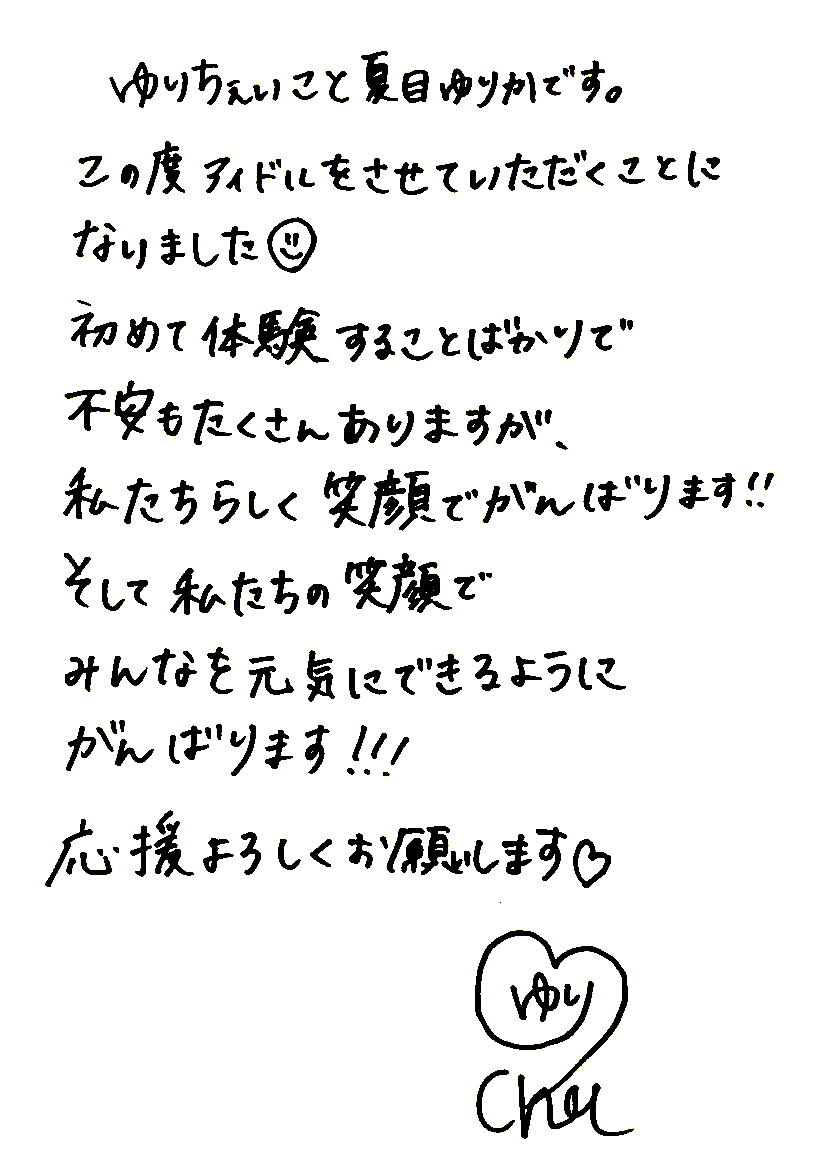 ゆりちぇいこと夏目ゆりかです。
この度アイドルをさせていただくことに
なりました☺
初めて体験することばかりで
不安もたくさんありますが、
私たちらしく笑顔でがんばります!!
そして私たちの笑顔で
みんなを元気にできるように
がんばります!!!
応援よろしくお願いします♡
ゆり
Chu